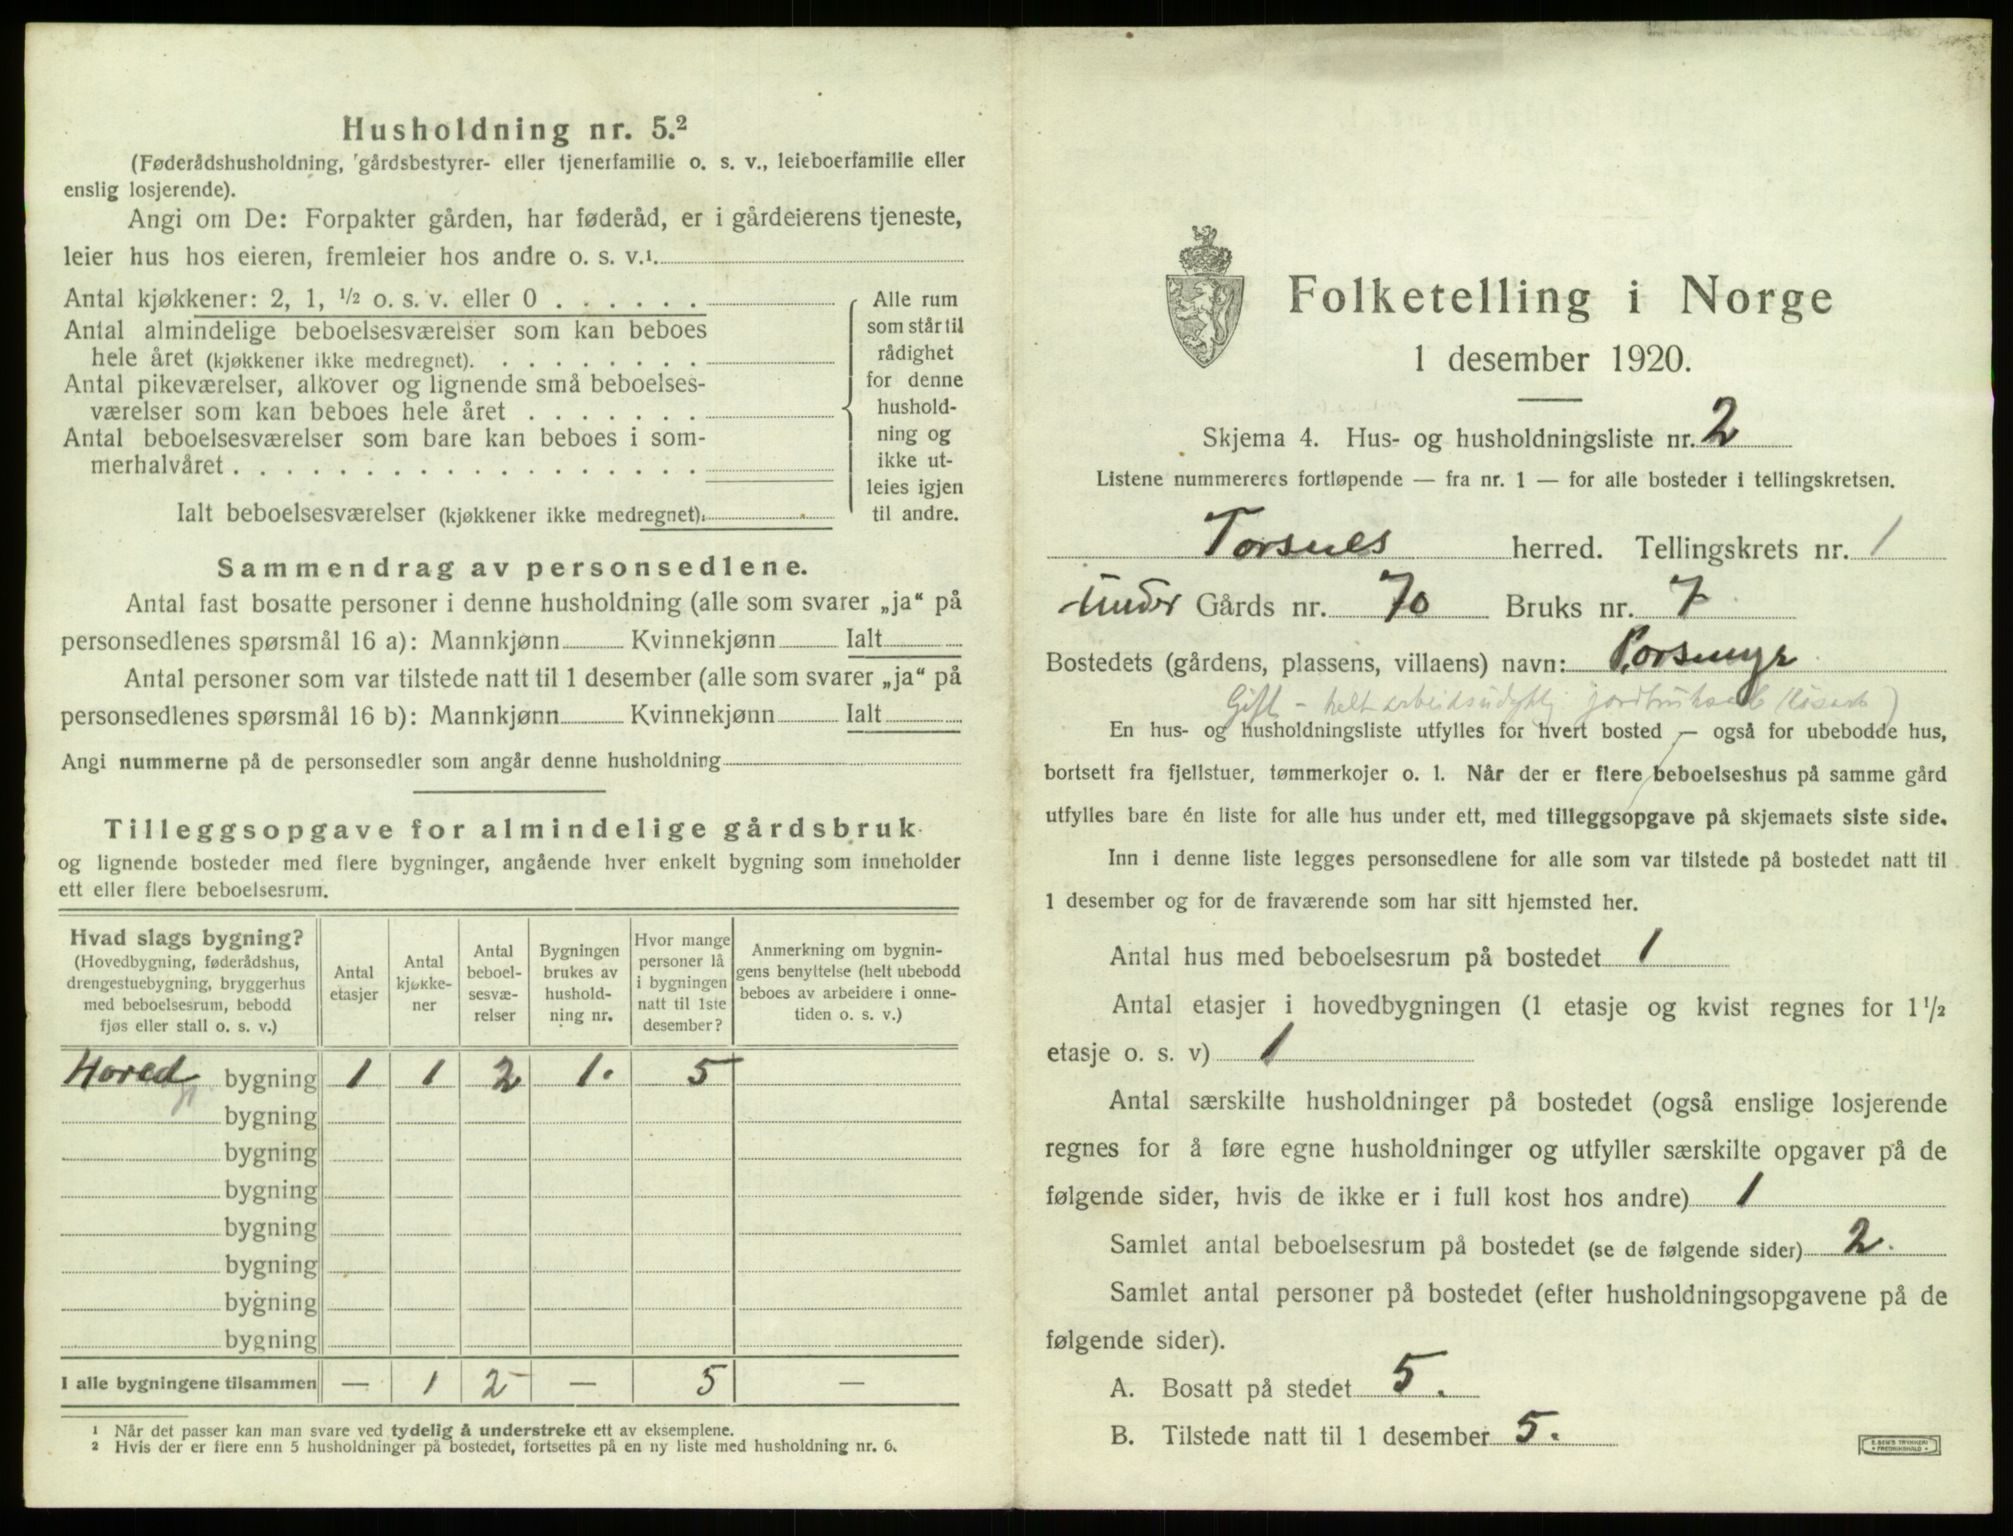 Husholdning nr. 5.²
(Føderådshusholdning, gårdsbestyrer- eller tjenerfamilie o. s. v., leieboerfamilie eller
enslig losjerende).
Angi om De: Forpakter gården, har føderåd, er i gårdeierens tjeneste,
leier hus hos eieren, fremleier hos andre o. s. v.¹
Antal kjøkkener: 2, 1, ½ o. s. v. eller 0 . . . . . .
Antal almindelige beboelsesværelser som kan beboes
hele året (kjøkkener ikke medregnet). . . . . . . . .
Antal pikeværelser, alkover og lignende små beboelses-
værelser som kan beboes hele året . . . . . . .
Antal beboelsesværelser som bare kan beboes i som-
merhalvåret . . . . . . . . . . . . . . . . . .
Ialt beboelsesværelser (kjøkkener ikke medregnet).
Alle rum
som står til
rådighet
for denne
hushold-
ning og
ikke ut-
leies igjen
til andre.
Sammendrag av personsedlene.
Antal fast bosatte personer i denne husholdning (alle som svarer „ja“ på
personsedlenes spørsmål 16 a): Mannkjønn Kvinnekjønn Ialt
Antal personer som var tilstede natt til 1 desember (alle som svarer „ja“ på
personsedlenes spørsmål 16 b): Mannkjønn Kvinnekjønn Ialt
Angi nummerne på de personsedler som angår denne husholdning
Tilleggsopgave for almindelige gårdsbruk
og lignende bosteder med flere bygninger, angående hver enkelt bygning som inneholder
ett eller flere beboelsesrum.
Hvad slags bygning?
(Hovedbygning, føderådshus,
drengestuebygning, bryggerhus
med beboelsesrum, bebodd
fjøs eller stall o. s. v.)
Antal
etasjer
Antal
kjøkke-
ner
Antal
beboel-
sesvæ-
relser
Bygningen
brukes av
hushold-
ning nr.
Hvor mange
personer lå
i bygningen
natt til 1ste
desember?
Anmerkning om bygnin-
gens benyttelse (helt ubebodd
beboes av arbeidere i onne-
tiden o. s. v.)
Hoved bygning 1 1 2 1. 5
bygning
bygning
bygning
bygning
bygning
bygning
bygning
I alle bygningene tilsammen — 1 2 — 5 —
¹ Når det passer kan man svare ved tydelig å understreke ett av eksemplene.
² Hvis der er flere enn 5 husholdninger på bostedet, fortsettes på en ny liste med husholdning nr. 6.
Folketelling i Norge
1 desember 1920.
Skjema 4. Hus- og husholdningsliste nr. 2
Listene nummereres fortløpende — fra nr. 1 — for alle bosteder i tellingskretsen.
Torsnes herred. Tellingskrets nr. 1
under Gårds nr. 70 Bruks nr. 7
Bostedets (gårdens, plassens, villaens) navn: Porsmyr
Gift – helt arbeidsudyktig
En hus- og husholdningsliste utfylles for hvert bosted — også for ubebodde hus,
bortsett fra fjellstuer, tømmerkojer o. l. Når der er flere beboelseshus på samme gård
utfylles bare én liste for alle hus under ett, med tilleggsopgave på skjemaets siste side.
Inn i denne liste legges personsedlene for alle som var tilstede på bostedet natt til
1 desember og for de fraværende som har sitt hjemsted her.
Antal hus med beboelsesrum på bostedet 1
Antal etasjer i hovedbygningen (1 etasje og kvist regnes for 1 ½
etasje o. s. v) 1
Antal særskilte husholdninger på bostedet (også enslige losjerende
regnes for å føre egne husholdninger og utfyller særskilte opgaver på de
følgende sider, hvis de ikke er i full kost hos andre) 1
Samlet antal beboelsesrum på bostedet (se de følgende sider) 2.
Samlet antal personer på bostedet (efter husholdningsopgavene på de
følgende sider).
A. Bosatt på stedet 5.
B. Tilstede natt til 1 desember 5.